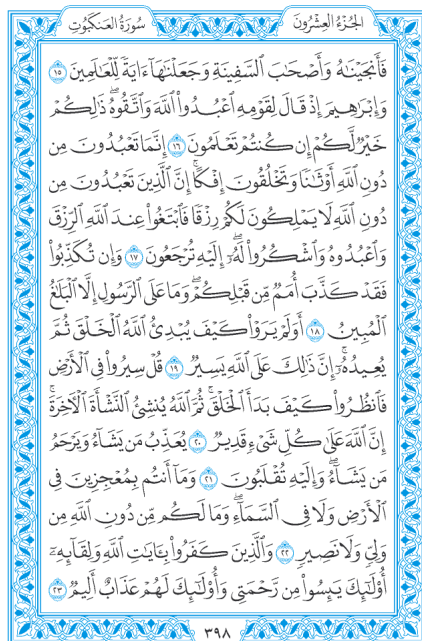 الجُزْءُ العِشْرُونَ سُورَةُ العَنكَبُوتِ
فَأَنجَيْنَٰهُ وَأَصْحَٰبَ ٱلسَّفِينَةِ وَجَعَلْنَٰهَآ ءَايَةً لِّلْعَٰلَمِينَ ١٥
وَإِبْرَٰهِيمَ إِذْ قَالَ لِقَوْمِهِ ٱعْبُدُوا۟ ٱللَّهَ وَٱتَّقُوهُ ۖ ذَٰلِكُمْ
خَيْرٌ لَّكُمْ إِن كُنتُمْ تَعْلَمُونَ ١٦ إِنَّمَا تَعْبُدُونَ مِن
دُونِ ٱللَّهِ أَوْثَٰنًا وَتَخْلُقُونَ إِفْكًا ۚ إِنَّ ٱلَّذِينَ تَعْبُدُونَ مِن
دُونِ ٱللَّهِ لَا يَمْلِكُونَ لَكُمْ رِزْقًا فَٱبْتَغُوا۟ عِندَ ٱللَّهِ ٱلرِّزْقَ
وَٱعْبُدُوهُ وَٱشْكُرُوا۟ لَهُۥٓ ۖ إِلَيْهِ تُرْجَعُونَ ١٧ وَإِن تُكَذِّبُوا۟
فَقَدْ كَذَّبَ أُمَمٌ مِّن قَبْلِكُمْ ۖ وَمَا عَلَى ٱلرَّسُولِ إِلَّا ٱلْبَلَٰغُ
ٱلْمُبِينُ ١٨ أَوَلَمْ يَرَوْا۟ كَيْفَ يُبْدِئُ ٱللَّهُ ٱلْخَلْقَ ثُمَّ
يُعِيدُهُۥٓ ۚ إِنَّ ذَٰلِكَ عَلَى ٱللَّهِ يَسِيرٌ ١٩ قُلْ سِيرُوا۟ فِى ٱلْأَرْضِ
فَٱنظُرُوا۟ كَيْفَ بَدَأَ ٱلْخَلْقَ ۚ ثُمَّ ٱللَّهُ يُنشِئُ ٱلنَّشْأَةَ ٱلْءَاخِرَةَ ۚ
إِنَّ ٱللَّهَ عَلَىٰ كُلِّ شَىْءٍ قَدِيرٌ ٢٠ يُعَذِّبُ مَن يَشَآءُ وَيَرْحَمُ
مَن يَشَآءُ ۖ وَإِلَيْهِ تُقْلَبُونَ ٢١ وَمَآ أَنتُم بِمُعْجِزِينَ فِى
ٱلْأَرْضِ وَلَا فِى ٱلسَّمَآءِ ۖ وَمَا لَكُم مِّن دُونِ ٱللَّهِ مِن
وَلِىٍّ وَلَا نَصِيرٍ ٢٢ وَٱلَّذِينَ كَفَرُوا۟ بِـَٔايَٰتِ ٱللَّهِ وَلِقَآئِهِۦٓ
أُو۟لَٰٓئِكَ يَئِسُوا۟ مِن رَّحْمَتِى وَأُو۟لَٰٓئِكَ لَهُمْ عَذَابٌ أَلِيمٌ ٢٣
٣٩٨